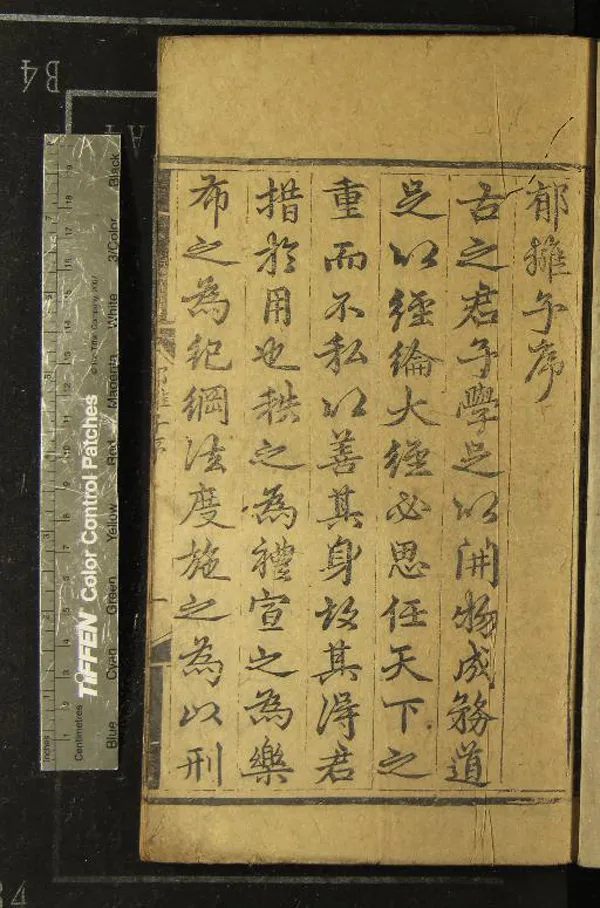 郁離子序
古之君子學足以開物成務道
足以經綸大經必思任天下之
重而不私以善其身故其得君
措於用也秩之為禮宣之為樂
布之為紀綱法度施之為以刑
B4
TIFFEN Color Control Patches
© The Tiffen Company, 2007
Inches
Centimetres
Blue Cyan Green Yellow Red Magenta White 3/Color Black